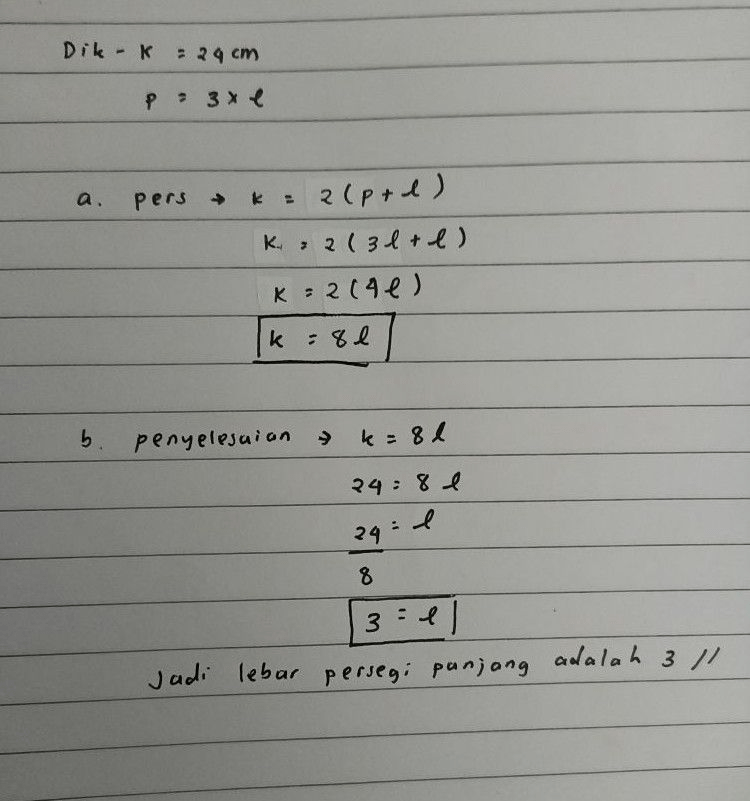 Dik - K = 24 cm
P = 3 x l
a. pers → k = 2 (p + l)
K = 2 ( 3l + l )
K = 2 (4l)
k = 8 l
b. penyelesaian → k = 8 l
24 = 8 l
24 = l
8
3 = l
Jadi lebar persegi panjang adalah 3 //